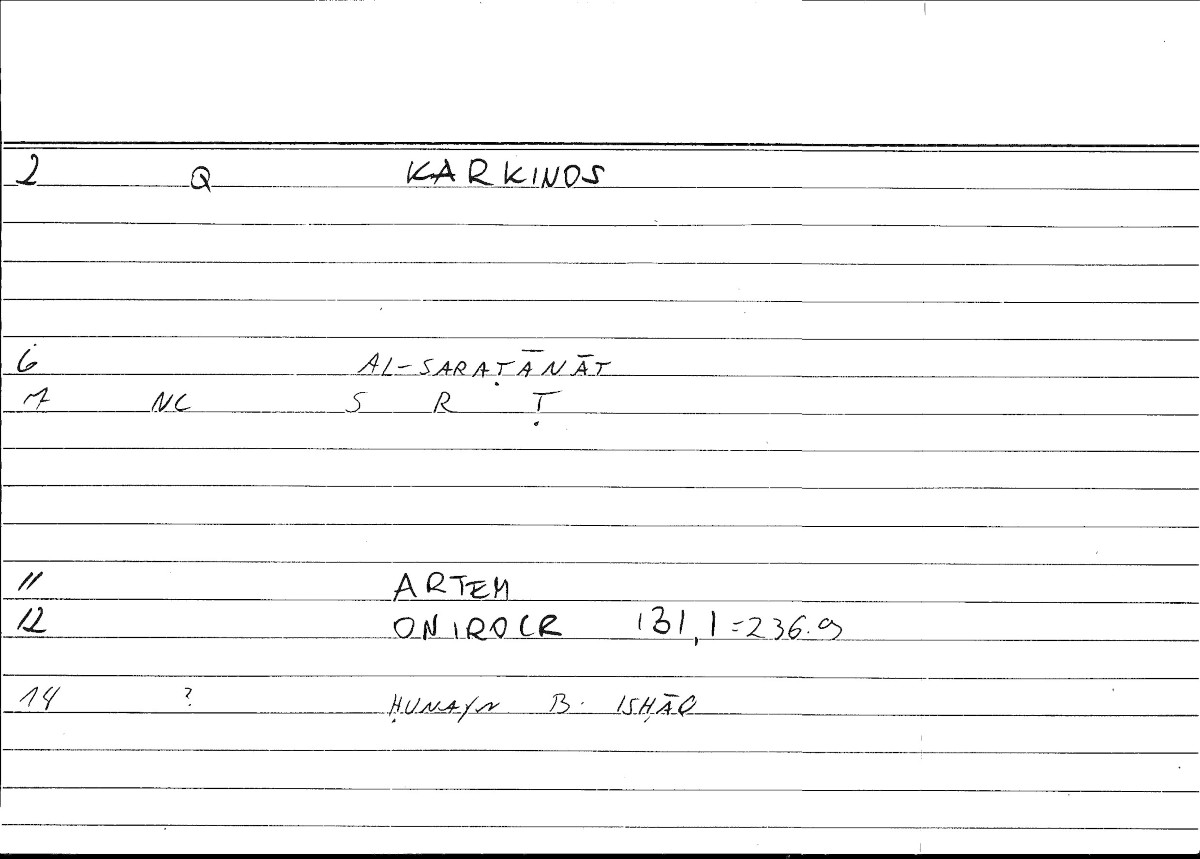 2 Q KARKINOS
6 AL-SARAṬĀNĀT
7 NC S R Ṭ
11 ARTEM
12 ONIROCR 131,1=236.9
14 ? ḤUNAYN B. ISḤĀQ